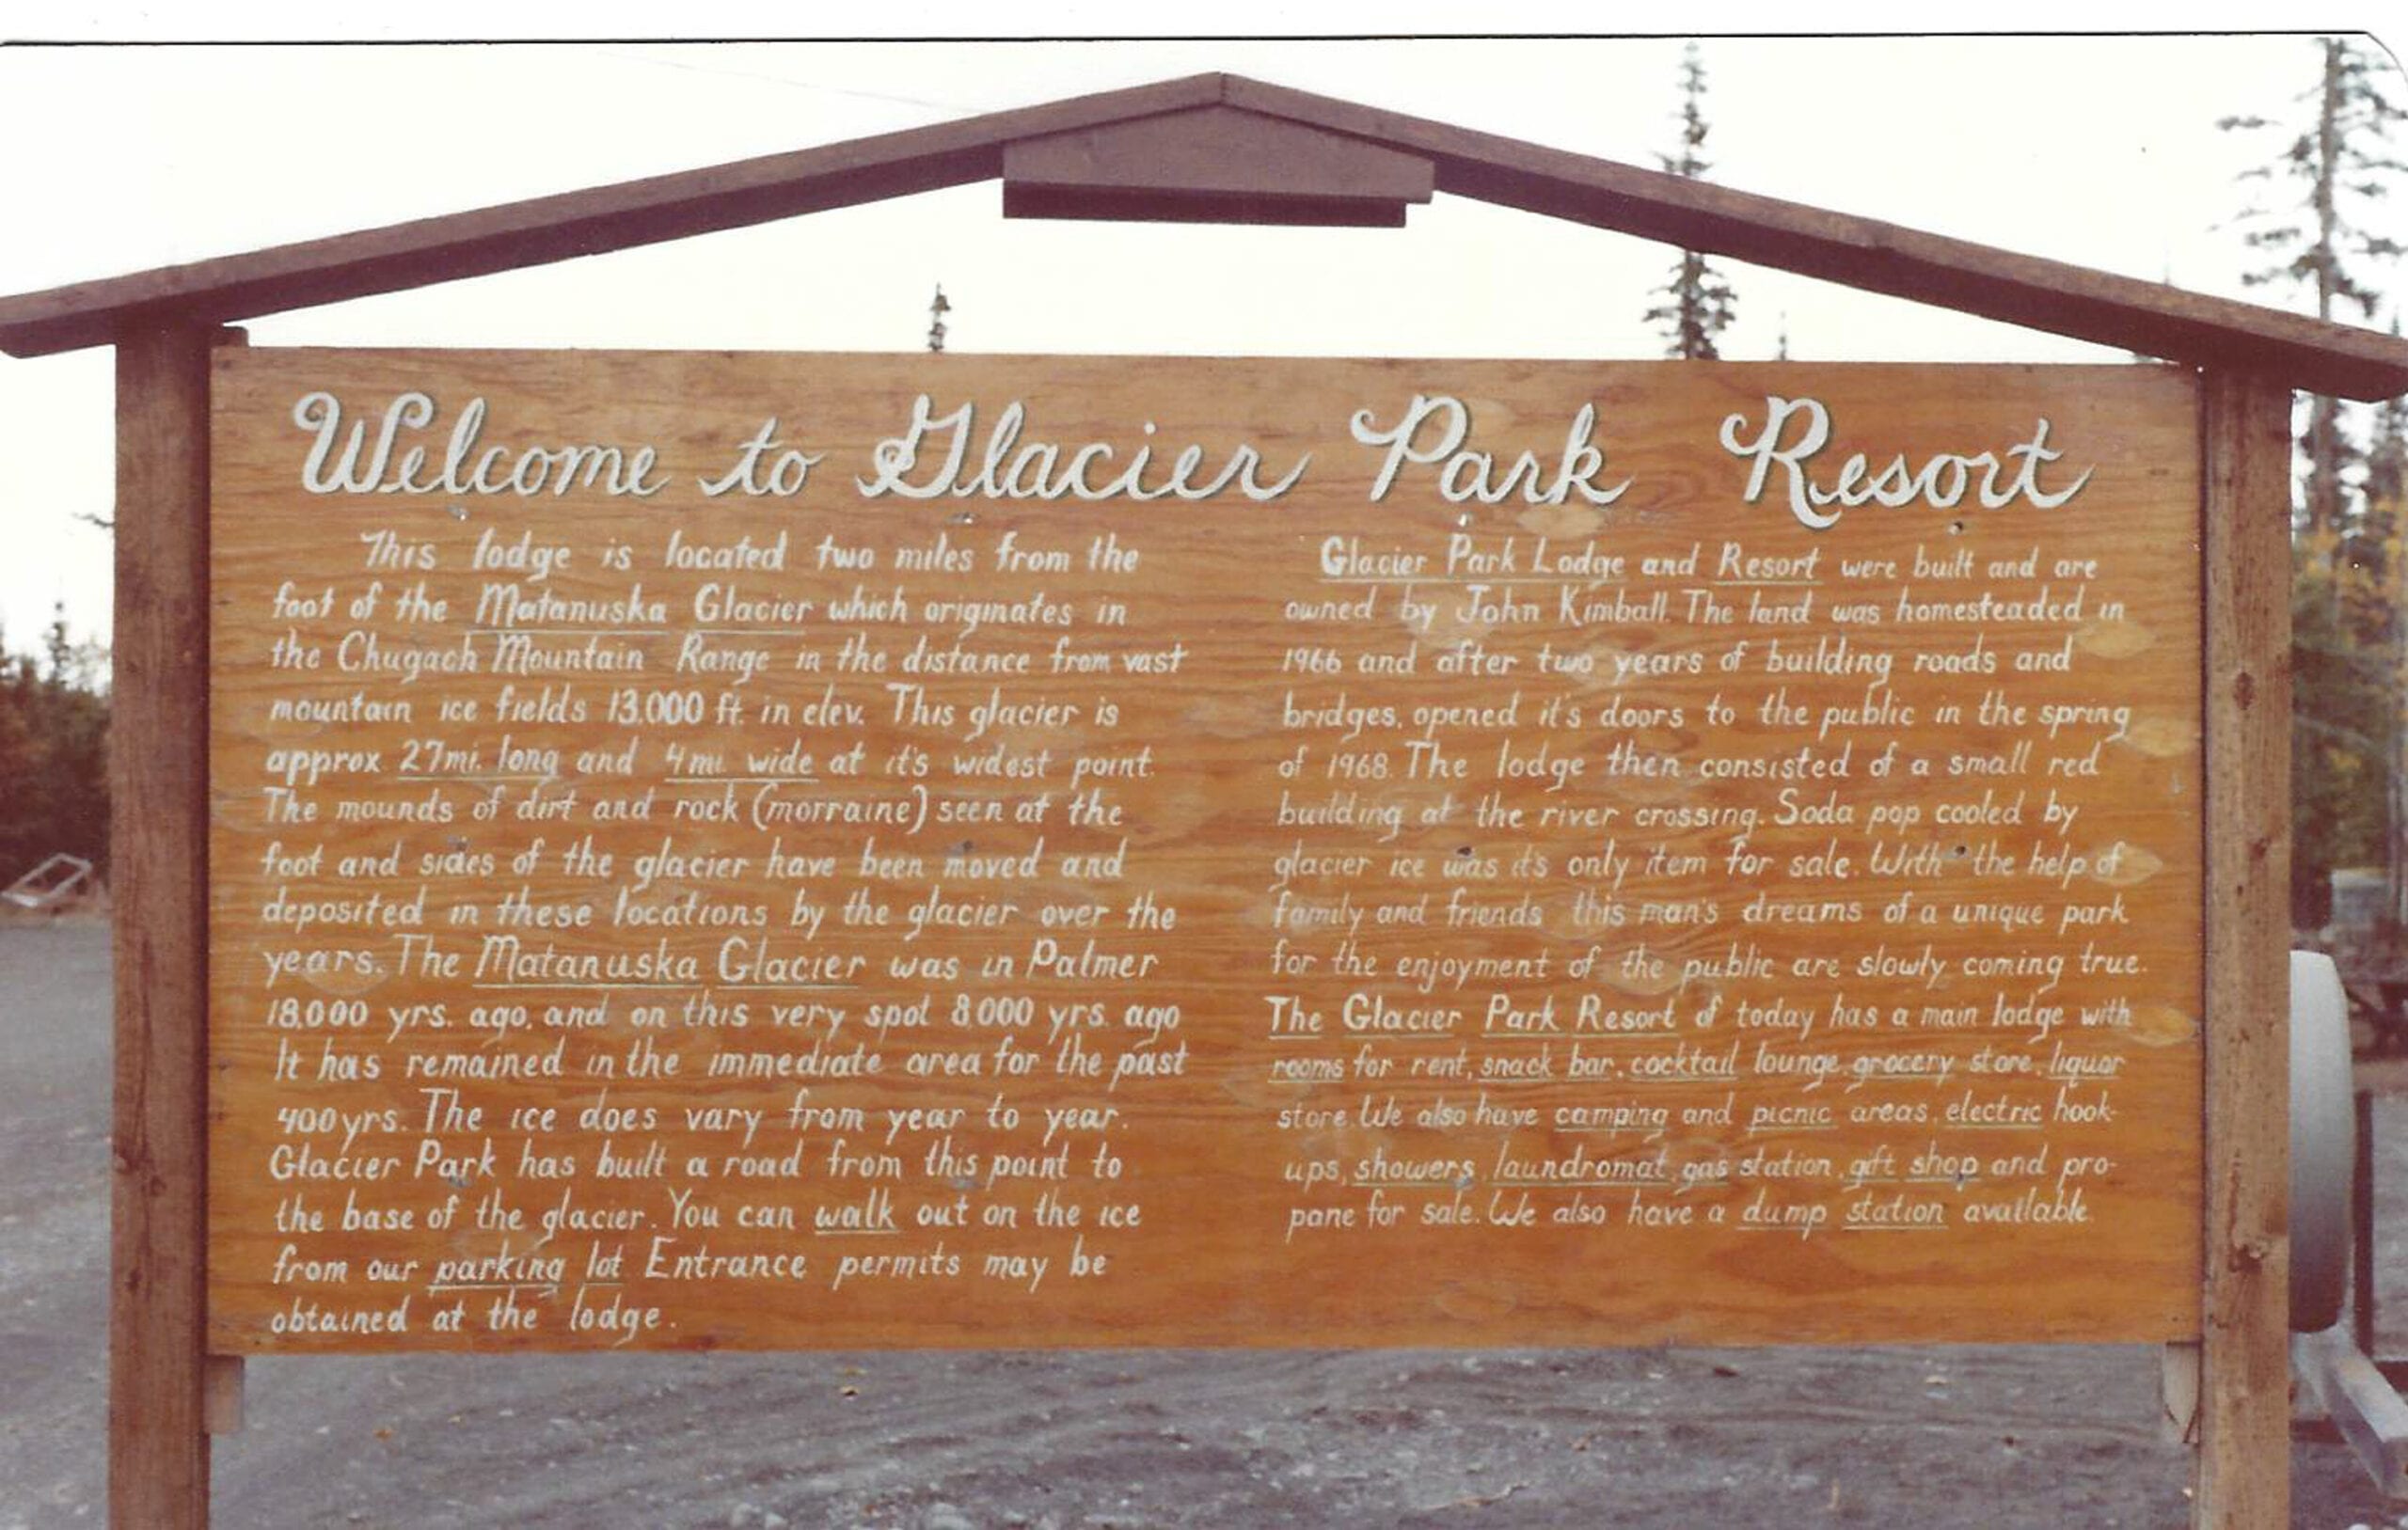 Welcome to Glacier Park Resort
This lodge is located two miles from the
foot of the Matanuska Glacier which originates in
the Chugach Mountain Range in the distance from vast
mountain ice fields 13,000 ft. in elev. This glacier is
approx 27mi. long and 4mi. wide at it's widest point.
The mounds of dirt and rock (morraine) seen at the
foot and sides of the glacier have been moved and
deposited in these locations by the glacier over the
years. The Matanuska Glacier was in Palmer
18,000 yrs. ago, and on this very spot 8,000 yrs. ago
It has remained in the immediate area for the past
400 yrs. The ice does vary from year to year.
Glacier Park has built a road from this point to
the base of the glacier. You can walk out on the ice
from our parking lot Entrance permits may be
obtained at the lodge.
Glacier Park Lodge and Resort were built and are
owned by John Kimball. The land was homesteaded in
1966 and after two years of building roads and
bridges, opened it's doors to the public in the spring
of 1968. The lodge then consisted of a small red
building at the river crossing. Soda pop cooled by
glacier ice was it's only item for sale. With the help of
family and friends this man's dreams of a unique park
for the enjoyment of the public are slowly coming true.
The Glacier Park Resort of today has a main lodge with
rooms for rent, snack bar, cocktail lounge, grocery store, liquor
store. We also have camping and picnic areas, electric hook-
ups, showers, laundromat, gas station, gift shop and pro-
pane for sale. We also have a dump station available.